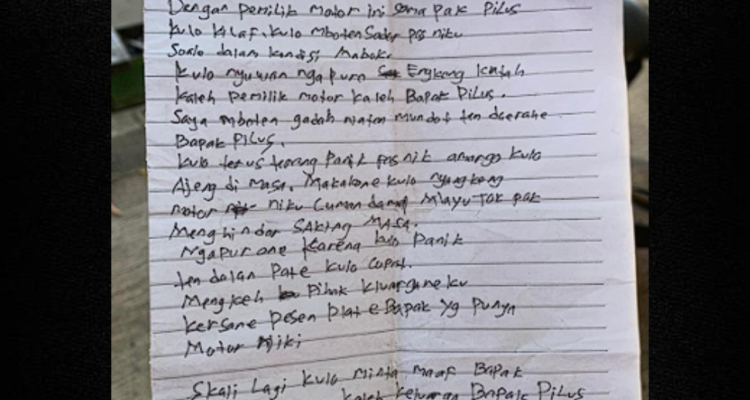 Dengan pemilik motor ini sama pak Pilus
kulo kilaf. kulo mboten sader pas niku
Soalo dalam kondisi mabok.
kulo nyuwun ngapuro Engkang katah
kaleh pemilik motor kaleh Bapak Pilus.
Saya mboten gadah niatan mundot ten daerahe
Bapak Pilus.
kulo terus terang panik pas nik amargo kulo
Ajeng di masa. Makalane kulo nyangkeng
motor niku Cuman damel mlayu tok pak
Menghindar SAking Masa.
Ngapurane karena kulo panik
ten dalan Pate kulo Copot.
Mengkeh Pihak kluargane ku
kersane pesen plate Bapak yg punya
Motor Niki
Skali Lagi kulo Minta maaf Bapak
kaleh keluarga Bapak Pilus